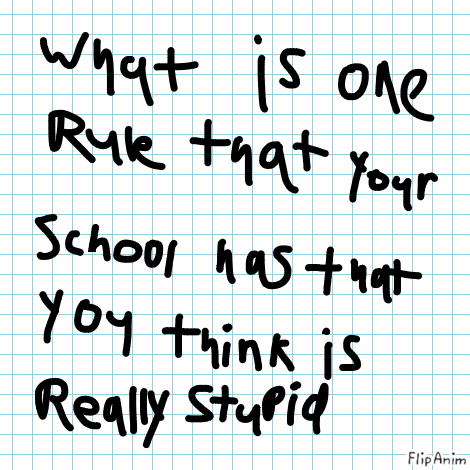 What is one
Rule that your
School has that
you think is
Really Stupid
FlipAnim